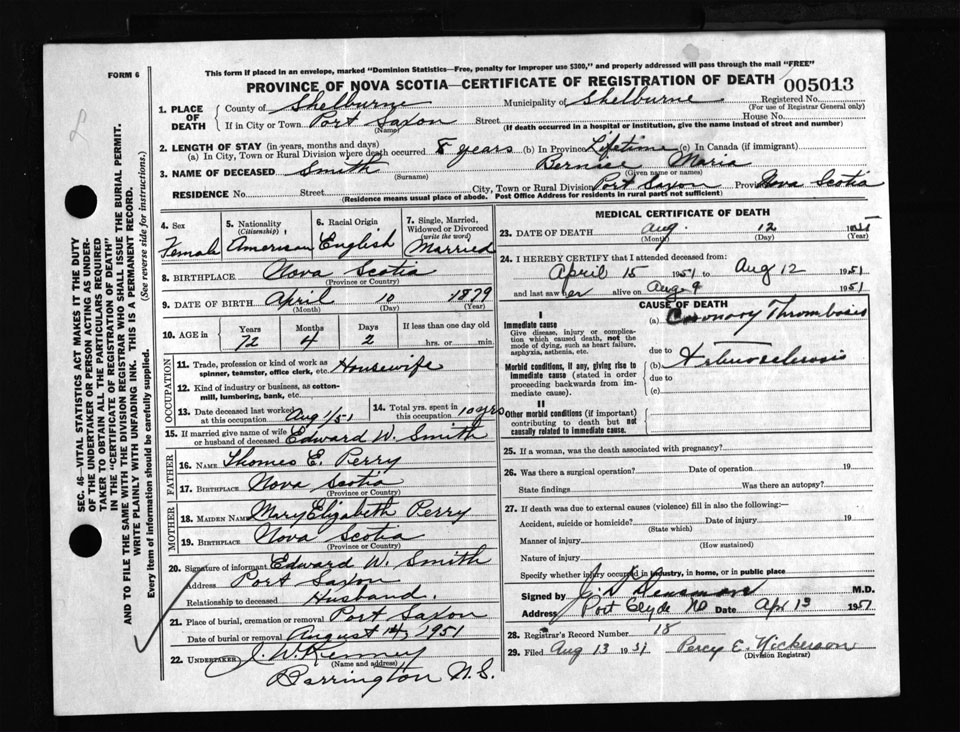 FORM 6
This form if placed in an envelope, marked "Dominion Statistics—Free, penalty for improper use $300," and properly addressed will pass through the mail "FREE"
PROVINCE OF NOVA SCOTIA—CERTIFICATE OF REGISTRATION OF DEATH
005013
1. PLACE OF DEATH County of Shelburne Municipality of Shelburne Registered No.
(For use of Registrar General only)
If in City or Town Port Saxon Street House No.
(Name) (If death occurred in a hospital or institution, give the name instead of street and number)
2. LENGTH OF STAY (in years, months and days)
(a) In City, Town or Rural Division where death occurred 8 years (b) In Province Lifetime (c) In Canada (if immigrant)
3. NAME OF DECEASED Smith Bernice Maria
(Surname) (Given name or names)
RESIDENCE No. Street City, Town or Rural Division Port Saxon Province Nova Scotia
(Residence means usual place of abode. Post Office Address for residents in rural parts not sufficient)
SEC. 46—VITAL STATISTICS ACT MAKES IT THE DUTY
OF THE UNDERTAKER OR PERSON ACTING AS UNDER-
TAKER TO OBTAIN ALL THE PARTICULARS REQUIRED
IN THE "CERTIFICATE OF REGISTRATION OF DEATH"
AND TO FILE THE SAME WITH THE DIVISION REGISTRAR WHO SHALL ISSUE THE BURIAL PERMIT.
WRITE PLAINLY WITH UNFADING INK. THIS IS A PERMANENT RECORD.
Every item of information should be carefully supplied. (See reverse side for instructions.)
4. Sex Female
5. Nationality (Citizenship) American
6. Racial Origin English
7. Single, Married, Widowed or Divorced (write the word) Married
8. BIRTHPLACE Nova Scotia
(Province or Country)
9. DATE OF BIRTH April 10 1879
(Month) (Day) (Year)
10. AGE in Years Months Days If less than one day old
72 4 2 hrs. or min.
OCCUPATION
11. Trade, profession or kind of work as spinner, teamster, office clerk, etc. Housewife
12. Kind of industry or business, as cotton-mill, lumbering, bank, etc.
13. Date deceased last worked at this occupation Aug 1/51
14. Total yrs. spent in this occupation 10 yrs
15. If married give name of wife or husband of deceased Edward W. Smith
FATHER
16. NAME Thomas E. Perry
17. BIRTHPLACE Nova Scotia
(Province or Country)
MOTHER
18. MAIDEN NAME Mary Elizabeth Perry
19. BIRTHPLACE Nova Scotia
(Province or Country)
20. Signature of informant Edward W. Smith
Address Port Saxon
Relationship to deceased Husband.
21. Place of burial, cremation or removal Port Saxon
Date of burial or removal August 14, 1951
22. UNDERTAKER J. W. Kenney
(Name and address)
Barrington N.S.
MEDICAL CERTIFICATE OF DEATH
23. DATE OF DEATH Aug 12 1951
(Month) (Day) (Year)
24. I HEREBY CERTIFY that I attended deceased from:
April 15 1951 to Aug 12 1951
and last saw her alive on Aug 9 1951
CAUSE OF DEATH
I
Immediate cause (a) Coronary Thrombosis
Give disease, injury or complication which caused death, not the mode of dying, such as heart failure, asphyxia, asthenia, etc.
due to
Morbid conditions, if any, giving rise to immediate cause (stated in order proceeding backwards from immediate cause). (b) Arteriosclerosis
due to
(c)
II
Other morbid conditions (if important) contributing to death but not causally related to immediate cause.
25. If a woman, was the death associated with pregnancy?
26. Was there a surgical operation? Date of operation 19
State findings Was there an autopsy?
27. If death was due to external causes (violence) fill in also the following:—
Accident, suicide or homicide? Date of injury 19
(State which)
Manner of injury
(How sustained)
Nature of injury
Specify whether injury occurred in industry, in home, or in public place
Signed by M.D.
Address Port Clyde NS Date Apr 13 1951
28. Registrar's Record Number 18
29. Filed Aug 13 1951 Percy E. Nickerson
(Division Registrar)